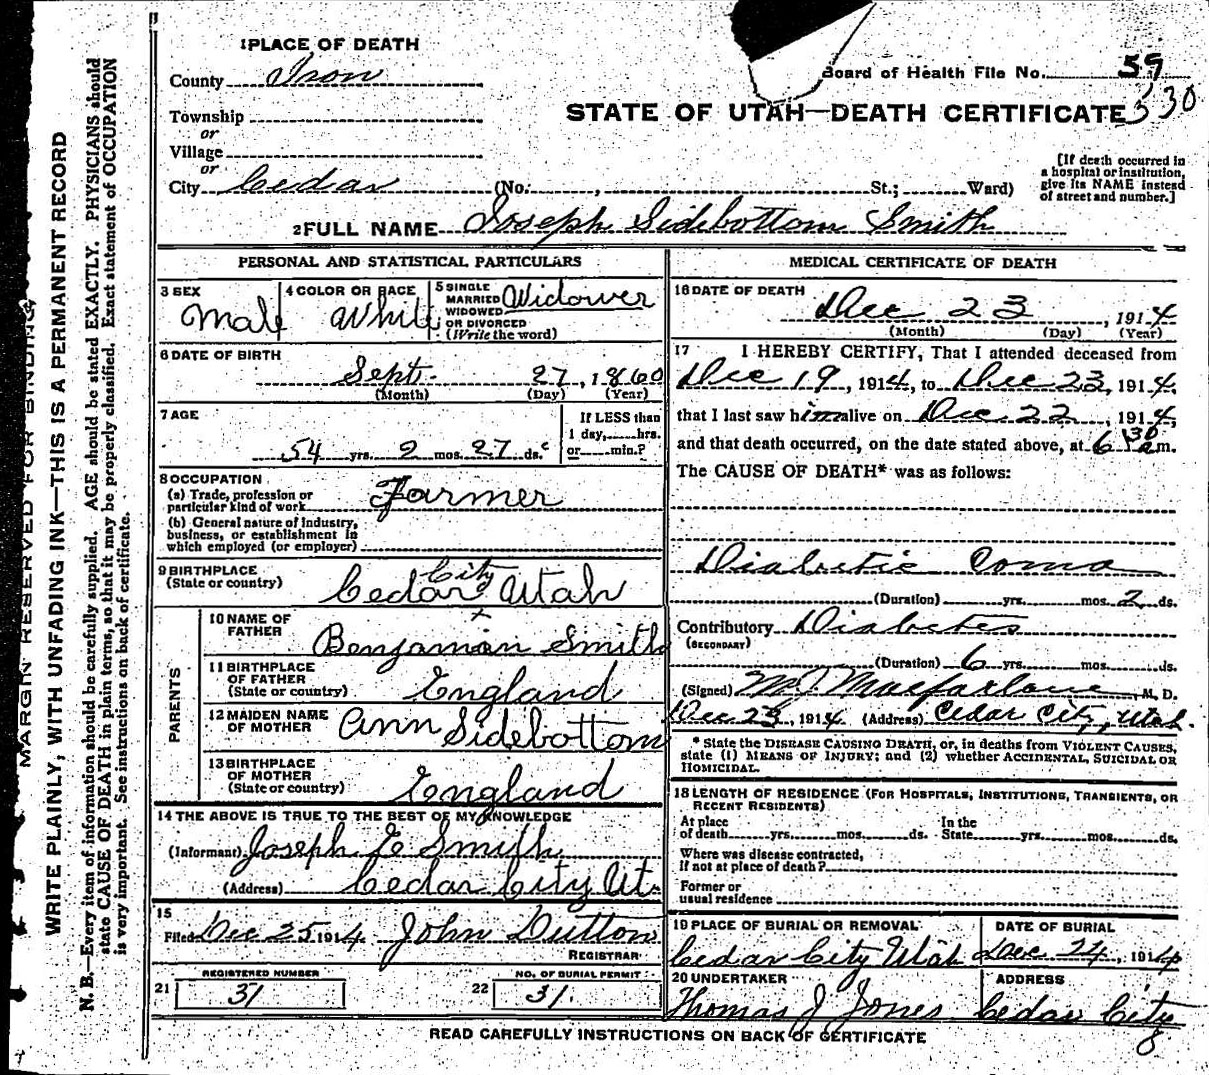 MARGIN RESERVED FOR BINDING
WRITE PLAINLY, WITH UNFADING INK—THIS IS A PERMANENT RECORD
N. B.—Every item of information should be carefully supplied. AGE should be stated EXACTLY. PHYSICIANS should
state CAUSE OF DEATH in plain terms, so that it may be properly classified. Exact statement of OCCUPATION
is very important. See instructions on back of certificate.
1 PLACE OF DEATH
County Iron
Township
or
Village
or
City Cedar (No. , St.; Ward)
Board of Health File No. 59
330
STATE OF UTAH—DEATH CERTIFICATE
[If death occurred in
a hospital or institution,
give its NAME instead
of street and number.]
2 FULL NAME Joseph Sidebottom Smith
PERSONAL AND STATISTICAL PARTICULARS
3 SEX
Male
4 COLOR OR RACE
White
5 SINGLE
MARRIED
WIDOWED
OR DIVORCED
(Write the word)
Widower
6 DATE OF BIRTH
Sept. 27, 1860
(Month) (Day) (Year)
7 AGE
54 yrs. 2 mos. 27 ds.
If LESS than
1 day, hrs.
or min.?
8 OCCUPATION
(a) Trade, profession or
particular kind of work
Farmer
(b) General nature of industry,
business, or establishment in
which employed (or employer)
9 BIRTHPLACE
(State or country)
Cedar City Utah
PARENTS
10 NAME OF
FATHER
Benjamin Smith
11 BIRTHPLACE
OF FATHER
(State or country)
England
12 MAIDEN NAME
OF MOTHER
Ann Sidebottom
13 BIRTHPLACE
OF MOTHER
(State or country)
England
14 THE ABOVE IS TRUE TO THE BEST OF MY KNOWLEDGE
(Informant) Joseph E Smith
(Address) Cedar City Ut.
15
Filed Dec 25 1914 John Dutton
REGISTRAR
REGISTERED NUMBER
21 31
NO. OF BURIAL PERMIT
22 31.
MEDICAL CERTIFICATE OF DEATH
16 DATE OF DEATH
Dec 23, 1914
(Month) (Day) (Year)
17 I HEREBY CERTIFY, That I attended deceased from
Dec 19, 1914, to Dec 23, 1914,
that I last saw him alive on Dec. 22, 1914,
and that death occurred, on the date stated above, at 6 30 am.
The CAUSE OF DEATH* was as follows:
Diabetic Coma
(Duration) yrs. mos. 2 ds.
Contributory Diabetes
(SECONDARY)
(Duration) 6 yrs. mos. ds.
(Signed) M. J. Macfarlane, M. D.
Dec 23, 1914 (Address) Cedar City, Utah.
* State the DISEASE CAUSING DEATH, or, in deaths from VIOLENT CAUSES,
state (1) MEANS OF INJURY; and (2) whether ACCIDENTAL, SUICIDAL OR
HOMICIDAL.
18 LENGTH OF RESIDENCE (FOR HOSPITALS, INSTITUTIONS, TRANSIENTS, OR
RECENT RESIDENTS)
At place
of death yrs. mos. ds.
In the
State yrs. mos. ds.
Where was disease contracted,
if not at place of death?
Former or
usual residence
19 PLACE OF BURIAL OR REMOVAL
Cedar City Utah
DATE OF BURIAL
Dec. 24, 1914
20 UNDERTAKER
Thomas J Jones
ADDRESS
Cedar City
8
READ CAREFULLY INSTRUCTIONS ON BACK OF CERTIFICATE